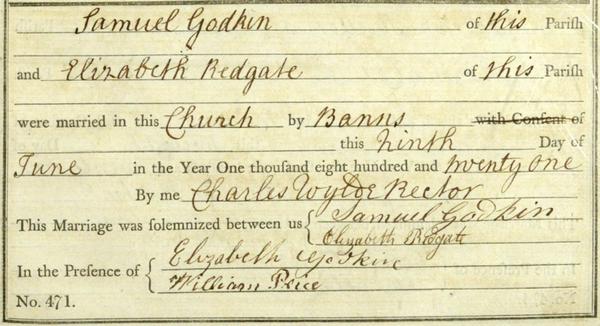 Samuel Godkin of this Pariſh
and Elizabeth Redgate of this Pariſh
were married in this Church by Banns with Conſent of
this Ninth Day of
June in the Year One thouſand eight hundred and twenty one
By me Charles Wylde Rector
This Marriage was ſolemnized between us { Samuel Godkin
Elizabeth Redgate
In the Presence of { Elizabeth Godkin
William Price
No. 471.